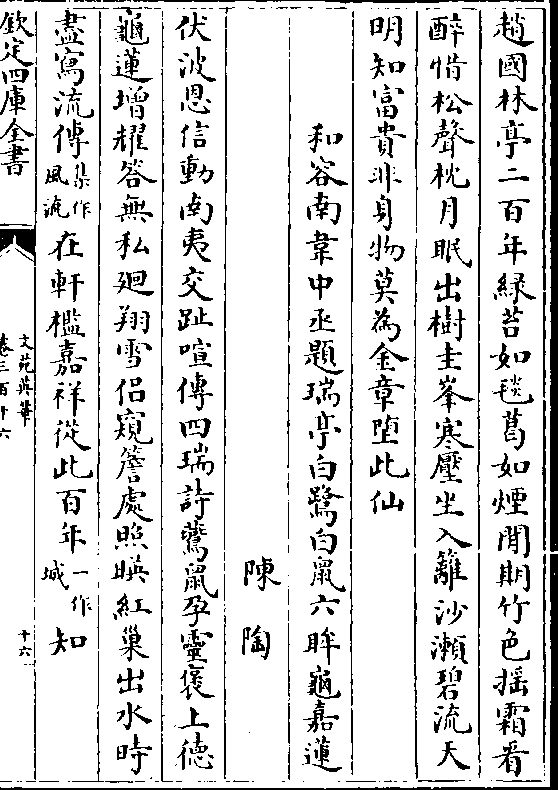 趙國林亭二百年綠苔如毯葛如煙閒期竹色揺霜看
醉惜松聲枕月眠出樹圭峯寒壓坐入籬沙瀬碧流天
明知富貴非身物莫為金章墮此仙
和容南韋中丞題瑞亭白鷺白鼠六眸龜嘉蓮
陳陶
伏波恩信動南夷交趾喧傳四瑞詩鷺鼠孕靈褒上德
龜蓮增耀答無私廻翔雪侣窺簷處照暎紅巢出水時
盡寫流傳集作風流在軒檻嘉祥從此百年一作城知
欽定四庫全書
文苑英華
卷三百十六
十六